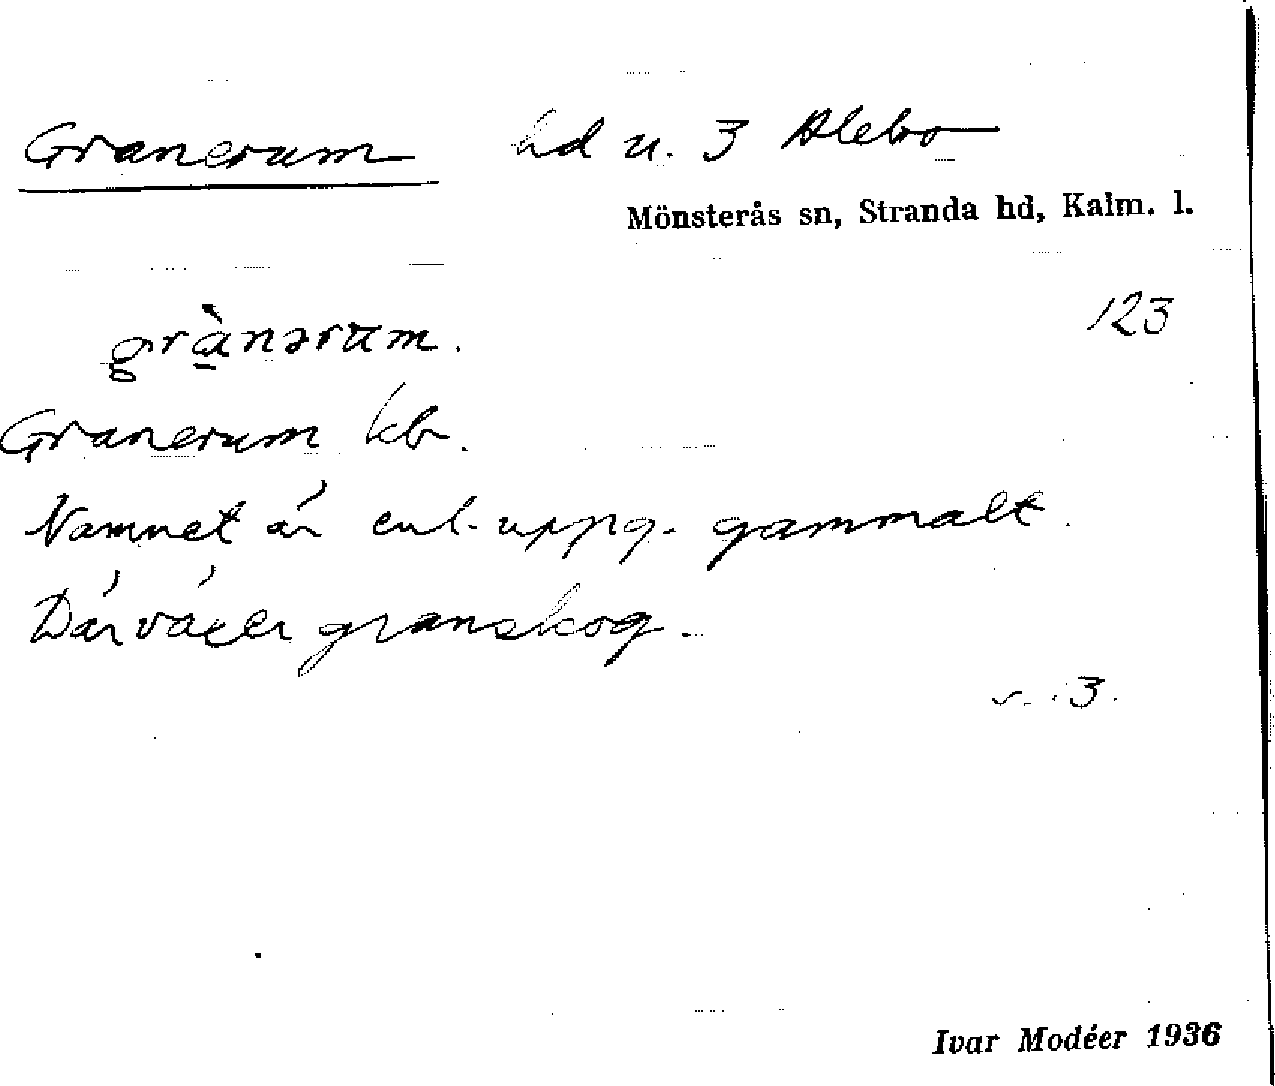 Granerum hd u. 3 Alebo
Mönsterås sn, Stranda hd, Kalm. l.
123
grànərum.
Granerum kb.
Namnet är enl. uppg. gammalt.
Där växer granskog.
3.
Ivar Modéer 1936